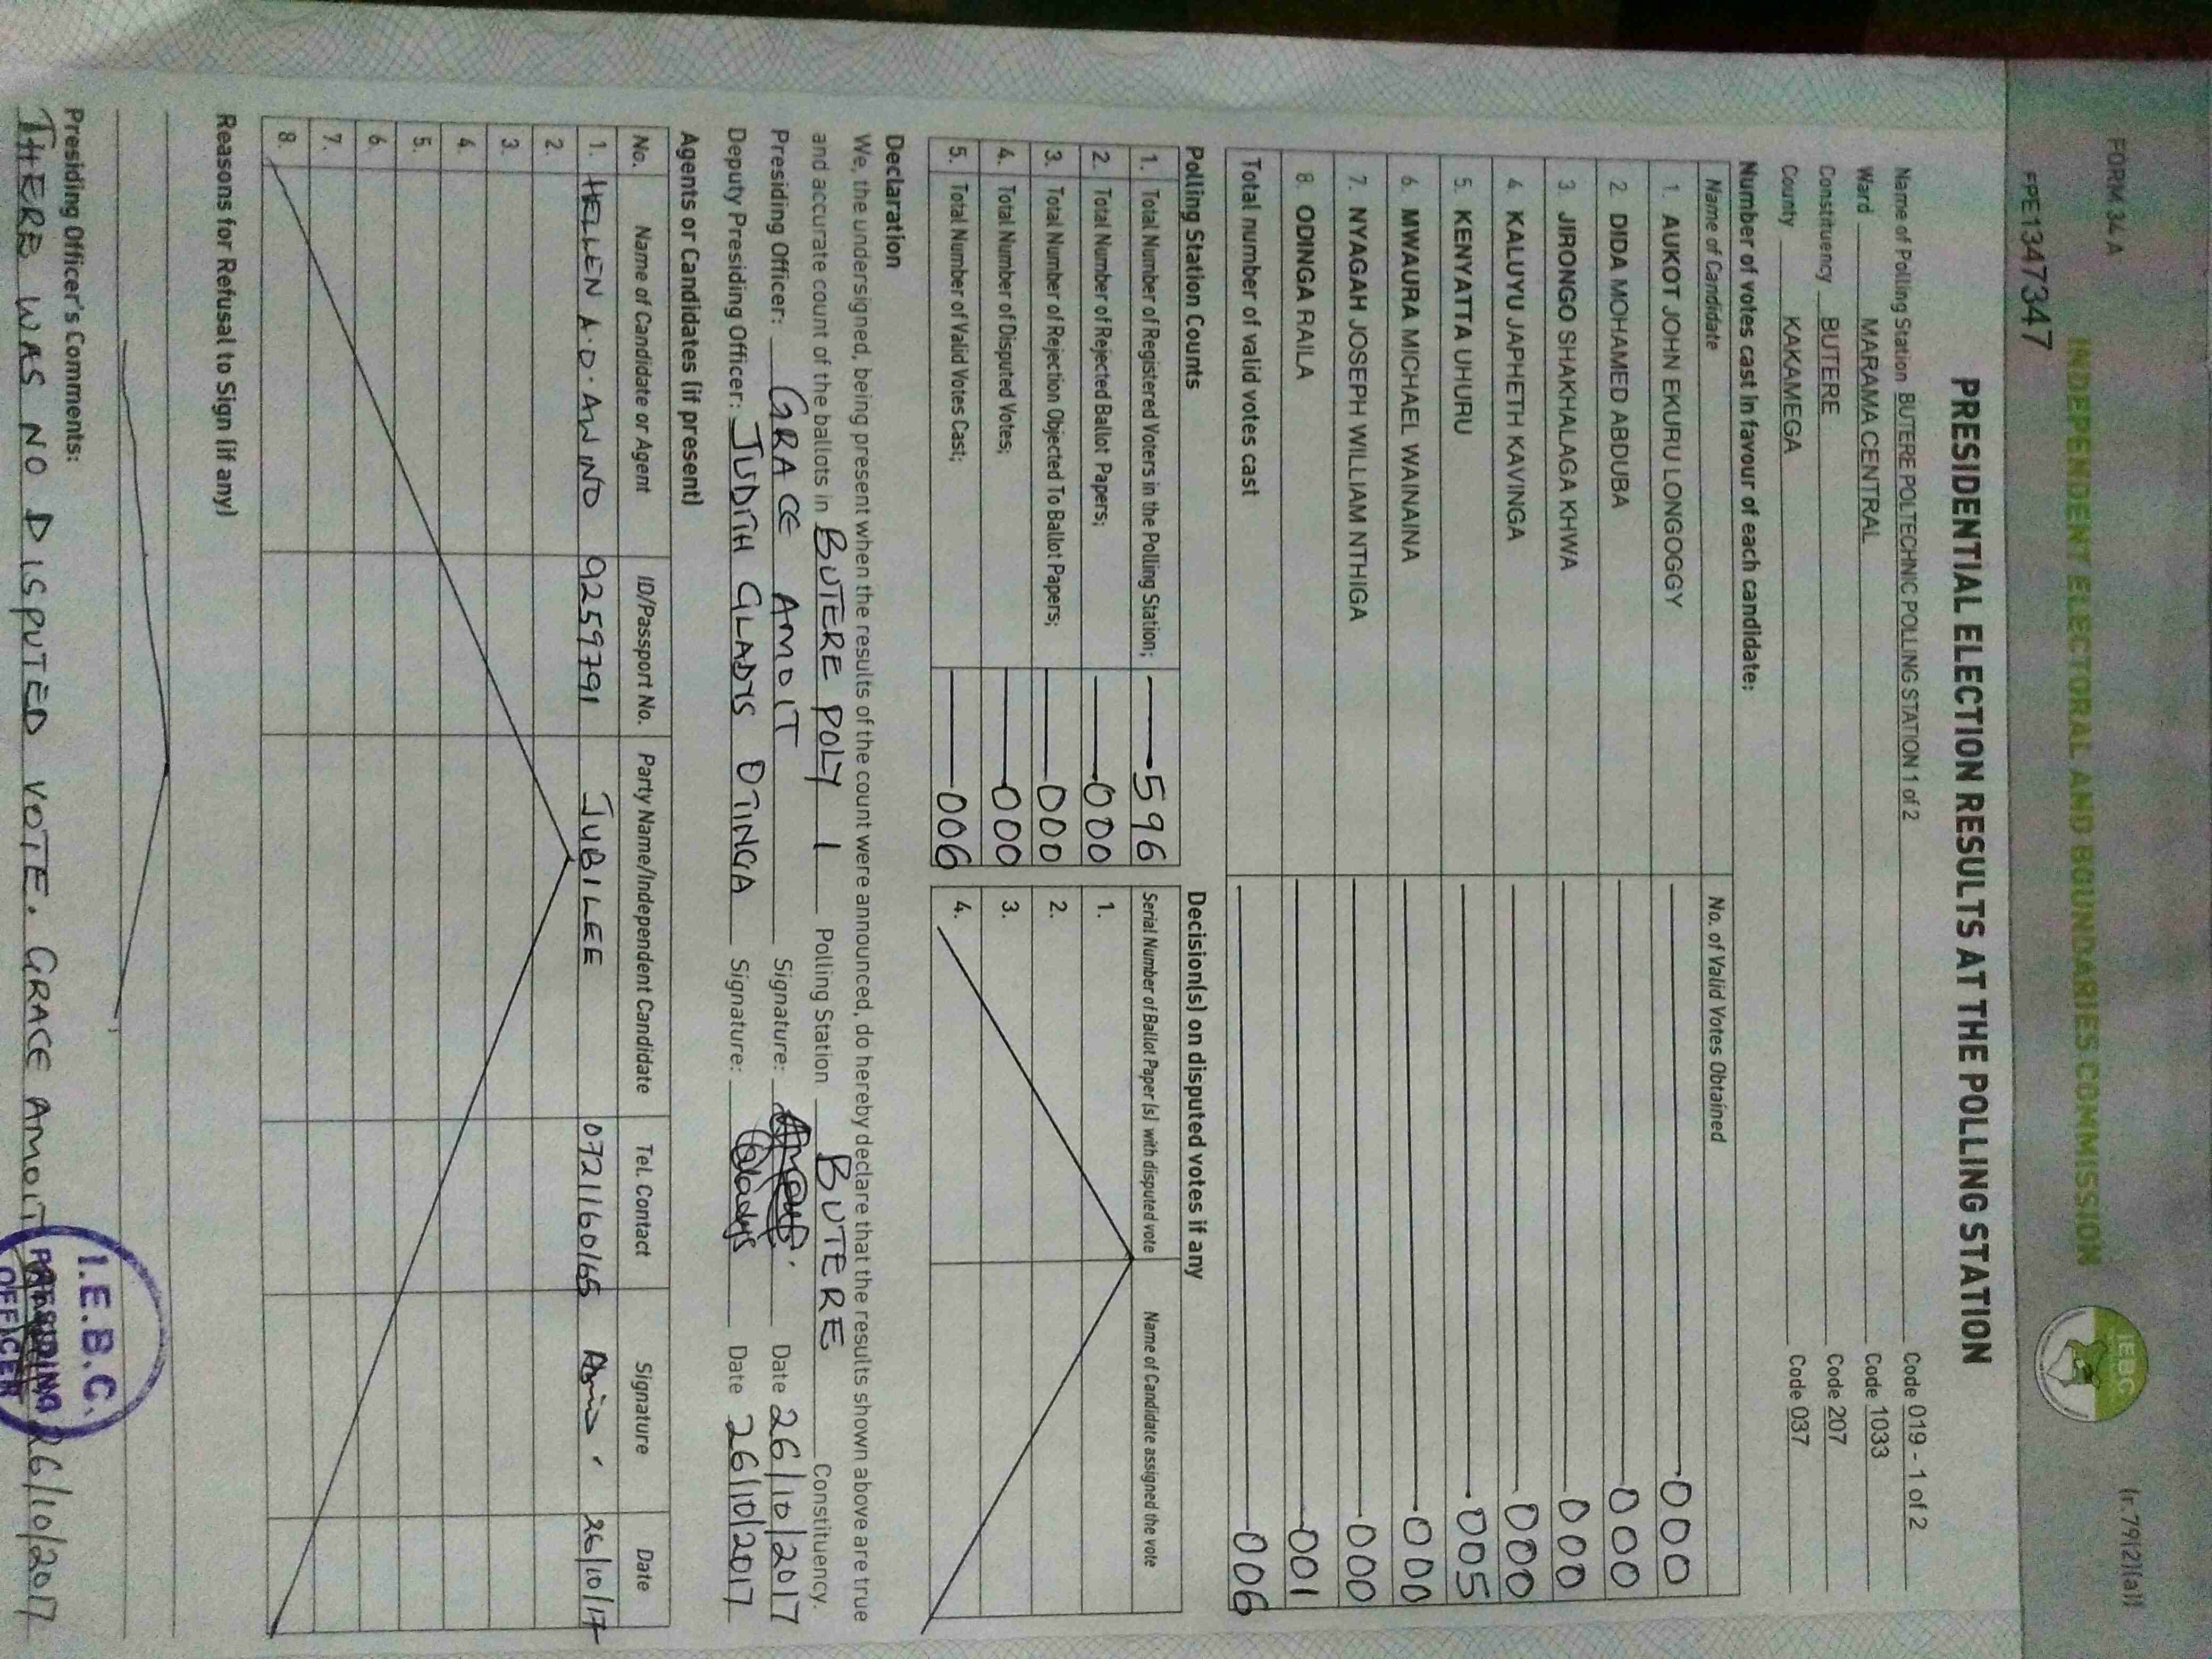 FORM 34 A
(r.79(2)(a))
INDEPENDENT ELECTORAL AND BOUNDARIES COMMISSION
IEBC
FPE1347347
PRESIDENTIAL ELECTION RESULTS AT THE POLLING STATION
Name of Polling Station BUTERE POLTECHNIC POLLING STATION 1 of 2 Code 019 - 1 of 2
Ward MARAMA CENTRAL Code 1033
Constituency BUTERE Code 207
County KAKAMEGA Code 037
Number of votes cast in favour of each candidate:
Name of Candidate No. of Valid Votes Obtained
1. AUKOT JOHN EKURU LONGOGGY 000
2. DIDA MOHAMED ABDUBA 000
3. JIRONGO SHAKHALAGA KHWA 000
4. KALUYU JAPHETH KAVINGA 000
5. KENYATTA UHURU 005
6. MWAURA MICHAEL WAINAINA 000
7. NYAGAH JOSEPH WILLIAM NTHIGA 000
8. ODINGA RAILA 001
Total number of valid votes cast 006
Polling Station Counts Decision(s) on disputed votes if any
1. Total Number of Registered Voters in the Polling Station; 596 Serial Number of Ballot Paper (s) with disputed vote Name of Candidate assigned the vote
2. Total Number of Rejected Ballot Papers; 000 1.
3. Total Number of Rejection Objected To Ballot Papers; 000 2.
4. Total Number of Disputed Votes; 000 3.
5. Total Number of Valid Votes Cast; 006 4.
Declaration
We, the undersigned, being present when the results of the count were announced, do hereby declare that the results shown above are true
and accurate count of the ballots in BUTERE POLY 1 Polling Station BUTERE Constituency.
Presiding Officer: GRACE AMOIT Signature: Date 26/10/2017
Deputy Presiding Officer: JUDITH GLADYS OTINGA Signature: Gladys Date 26/10/2017
Agents or Candidates (if present)
No. Name of Candidate or Agent ID/Passport No. Party Name/Independent Candidate Tel. Contact Signature Date
1. HELLEN A.O. AWINO 9259791 JUBILEE 0721160165 26/10/17
2.
3.
4.
5.
6.
7.
8.
Reasons for Refusal to Sign (if any)
Presiding Officer's Comments:
THERE WAS NO DISPUTED VOTE. GRACE AMOIT 26/10/2017
I.E.B.C.
PRESIDING
OFFICER